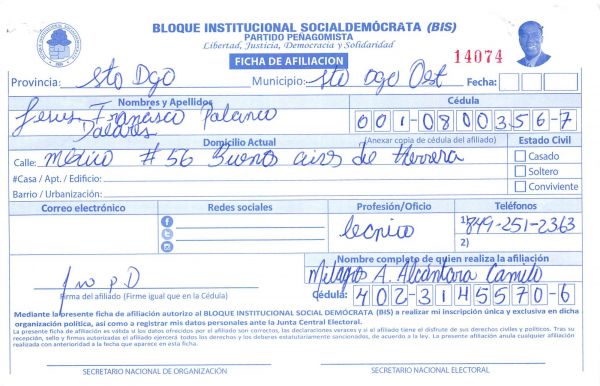 BLOQUE INSTITUCIONAL SOCIALDEMÓCRATA (BIS)
PARTIDO PEÑAGOMISTA
Libertad, Justicia, Democracia y Solidaridad
FICHA DE AFILIACION
14074
Provincia: Sto Dgo Municipio: Sto Dgo Oest Fecha:
Nombres y Apellidos Cédula
Jesus Francisco Polanco 001-0800356-7
(Anexar copia de cédula del afiliado)
Domicilio Actual Estado Civil
Calle: Mexico #56 Buenos aires de Herrera Casado
#Casa / Apt. / Edificio: Soltero
Barrio / Urbanización: Conviviente
Correo electrónico Redes sociales Profesión/Oficio Teléfonos
tecnico 1) 849-251-2363
2)
Nombre completo de quien realiza la afiliación
Milagos A. Alcántara Camilo
Firma del afiliado (Firme igual que en la Cédula) Cédula: 402-3145570-6
Mediante la presente ficha de afiliación autorizo al BLOQUE INSTITUCIONAL SOCIAL DEMÓCRATA (BIS) a realizar mi inscripción única y exclusiva en dicha
organización política, así como a registrar mis datos personales ante la Junta Central Electoral.
La presente ficha de afiliación es válida si los datos ofrecidos por el afiliado son correctos, las declaraciones veraces y si el afiliado tiene el disfrute de sus derechos civiles y políticos. Tras su
recepción, sello y firmas autorizadas el afiliado ejercerá todos los derechos y los deberes estatutariamente sancionados, de acuerdo a la ley. La presente afiliación anula cualquier afiliación
realizada con anterioridad a la fecha que aparece en esta ficha.
SECRETARIO NACIONAL DE ORGANIZACIÓN SECRETARIO NACIONAL ELECTORAL